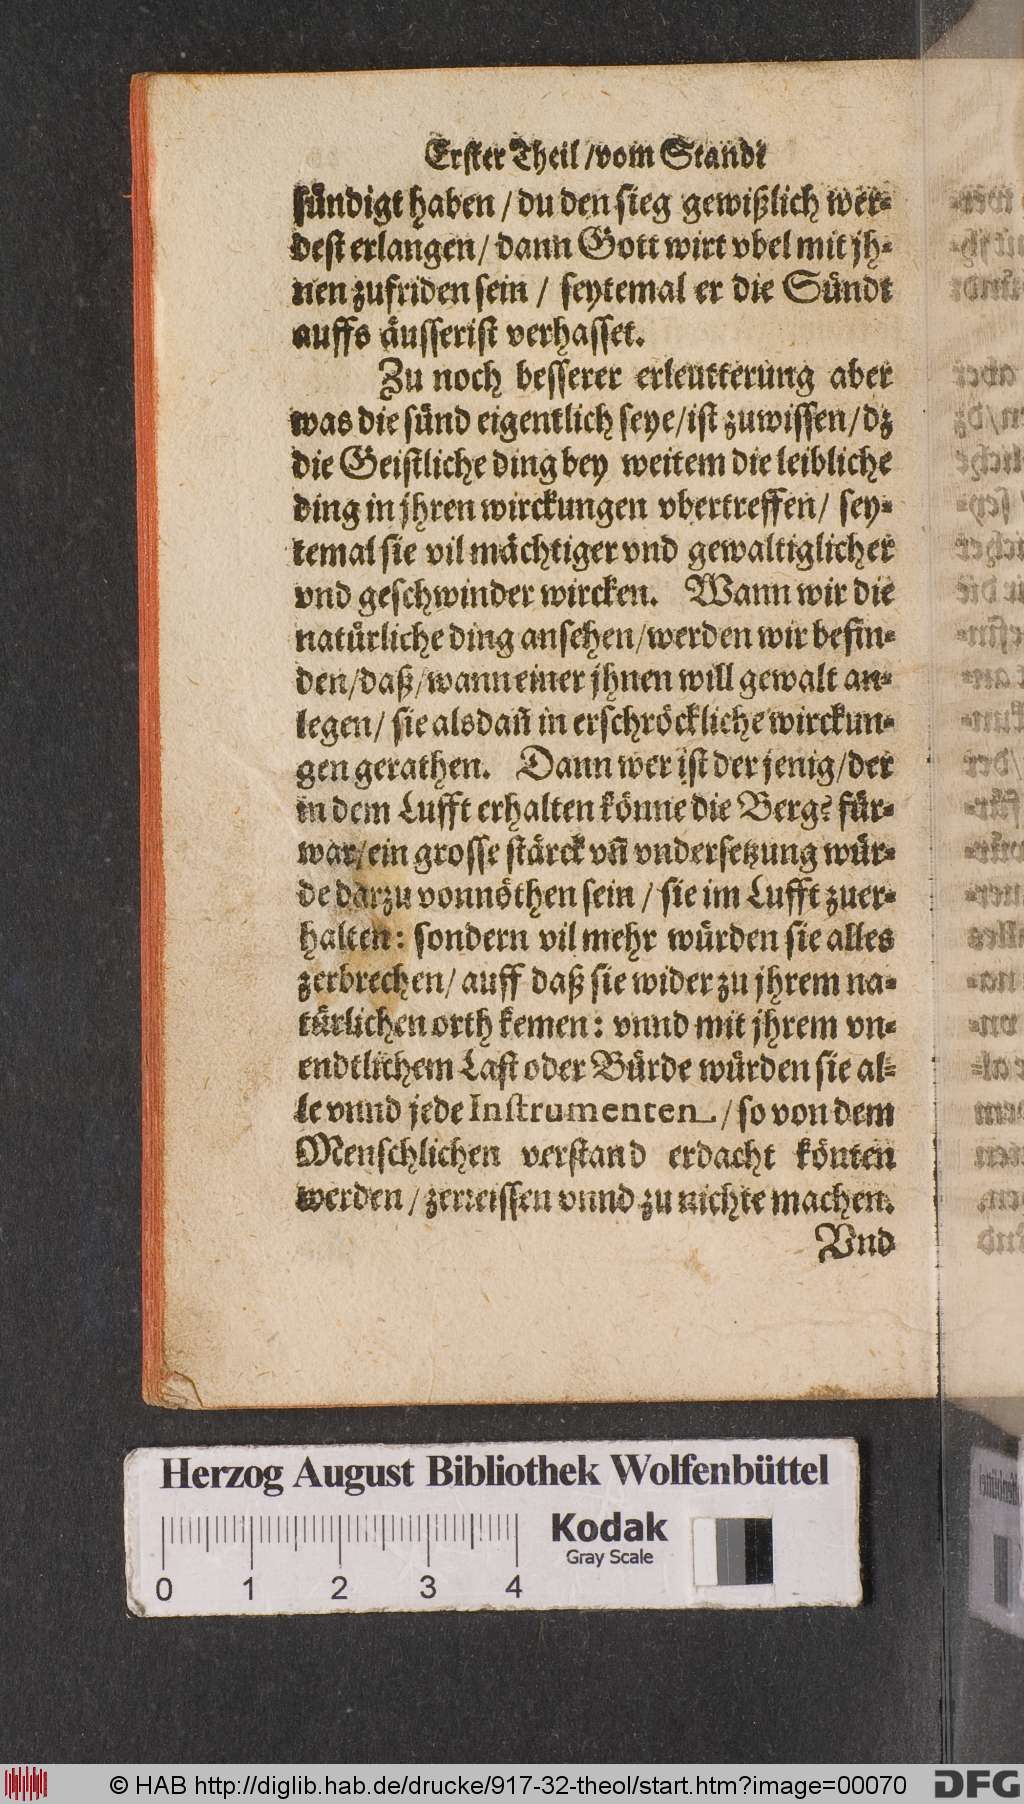 Erster Theil / vom Standt
sündigt haben / du den sieg gewißlich wer-
dest erlangen / dann Gott wirt vbel mit jh-
nen zufriden sein / seytemal er die Sündt
auffs äusserist verhasset.
Zu noch besserer erleutterung aber
was die sünd eigentlich seye / ist zuwissen / dz
die Geistliche ding bey weitem die leibliche
ding in jhren wirckungen vbertreffen / sey-
temal sie vil mächtiger vnd gewaltiglicher
vnd geschwinder wircken. Wann wir die
natürliche ding ansehen / werden wir befin-
den / daß / wann einer jhnen will gewalt an-
legen / sie alsdañ in erschröckliche wirckun-
gen gerathen. Dann wer ist der jenig / der
in dem Lufft erhalten könne die Berg? für-
war / ein grosse stärck vñ vndersetzung wür-
de darzu vonnöthen sein / sie im Lufft zuer-
halten: sondern vil mehr würden sie alles
zerbrechen / auff daß sie wider zu jhrem na-
türlichen orth kemen: vnnd mit jhrem vn-
endtlichem Last oder Bürde würden sie al-
le vnnd jede Instrumenten / so von dem
Menschlichen verstand erdacht könten
werden / zerreissen vnnd zu nichte machen.
Vnd
Herzog August Bibliothek Wolfenbüttel
Kodak
Gray Scale
0 1 2 3 4
© HAB http://diglib.hab.de/drucke/917-32-theol/start.htm?image=00070
DFG